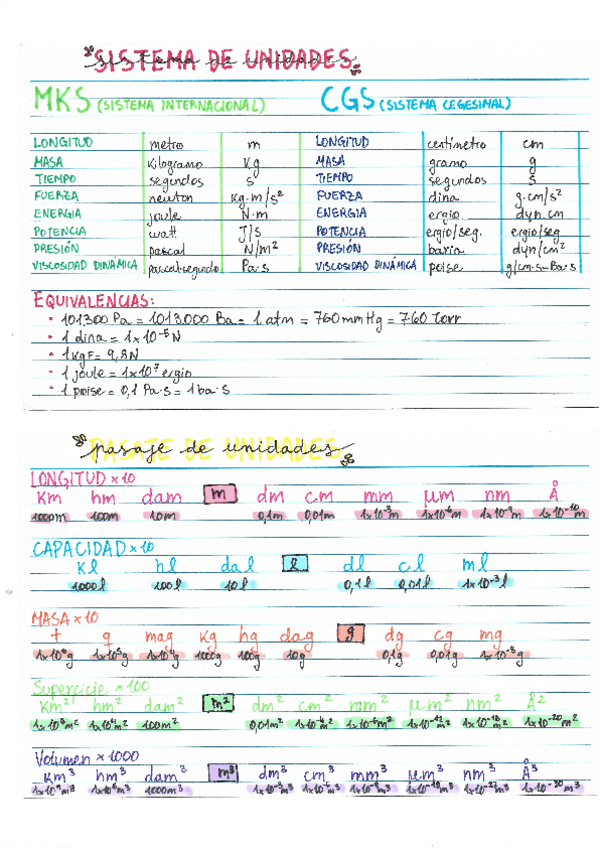 SISTEMA DE UNIDADES
sistema de unidades
MKS (SISTEMA INTERNACIONAL) CGS (SISTEMA CEGESIMAL)
LONGITUD metro m LONGITUD centímetro cm
MASA kilogramo Kg MASA gramo g
TIEMPO segundos s TIEMPO segundos s
FUERZA newton Kg.m/s² FUERZA dina g.cm/s²
ENERGIA joule N.m ENERGIA ergio dyn.cm
POTENCIA watt J/s POTENCIA ergio/seg. ergio/seg
PRESIÓN pascal N/m² PRESIÓN baria dyn/cm²
VISCOSIDAD DINÁMICA pascal.segundo Pa.s VISCOSIDAD DINÁMICA poise g/cm.s=Ba.s
EQUIVALENCIAS:
• 101.300 Pa = 1013.000 Ba = 1 atm = 760 mmHg = 760 Torr
• 1 dina = 1x10⁻⁵ N
• 1 KgF = 9,8N
• 1 joule = 1x10⁷ ergio
• 1 poise = 0,1 Pa.s = 1 ba.s
PASAJE DE UNIDADES
pasaje de unidades
LONGITUD x10
Km hm dam m dm cm mm µm nm Å
1000m 100m 10m 0,1m 0,01m 1x10⁻³m 1x10⁻⁶m 1x10⁻⁹m 1x10⁻¹⁰m
CAPACIDAD x10
Kl hl dal l dl cl ml
1000l 100l 10l 0,1l 0,01l 1x10⁻³l
MASA x10
t q mag Kg hg dag g dg cg mg
1x10⁶g 1x10⁵g 1x10⁴g 1000g 100g 10g 0,1g 0,01g 1x10⁻³g
Supercicie x100
Km² hm² dam² m² dm² cm² mm² µm² nm² Å²
1x10⁶m² 1x10⁴m² 100m² 0,01m² 1x10⁻⁴m² 1x10⁻⁶m² 1x10⁻¹²m² 1x10⁻¹⁸m² 1x10⁻²⁰m²
Volumen x1000
Km³ hm³ dam³ m³ dm³ cm³ mm³ µm³ nm³ Å³
1x10⁹m³ 1x10⁶m³ 1000m³ 1x10⁻³m³ 1x10⁻⁶m³ 1x10⁻⁹m³ 1x10⁻¹⁸m³ 1x10⁻²⁷m³ 1x10⁻³⁰m³